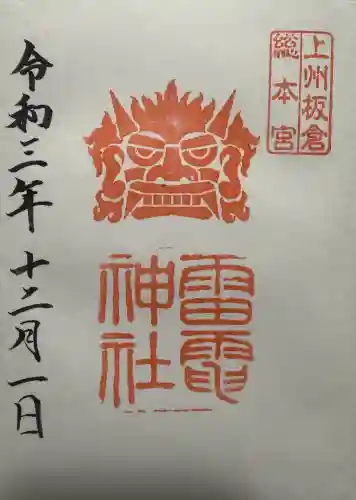 上州板倉
総本宮
雷電
神社
令和三年 十二月一日